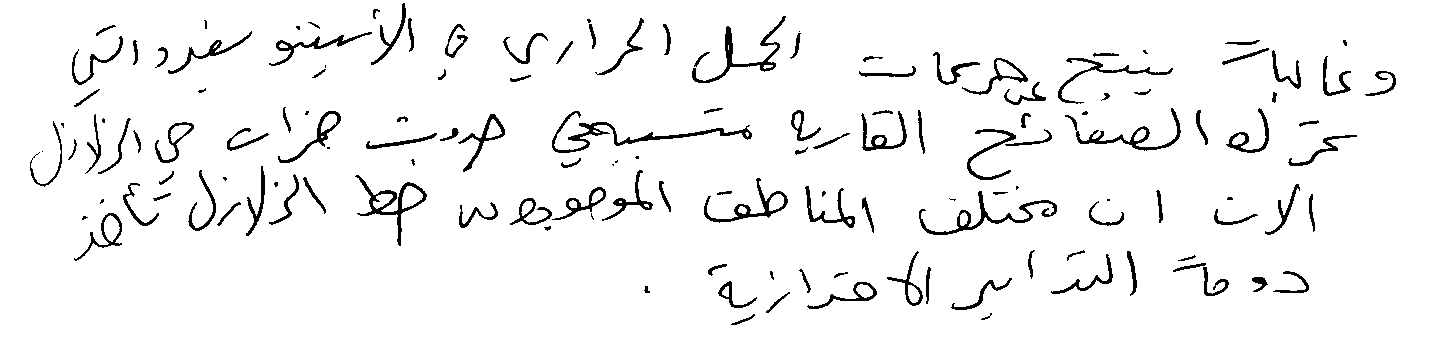 وغالباً ينتج عن جريمات الحمل الحراري في الأستينو سفير والتي
تحرك الصفائح القارية متسببة في حدوث هزات هي الزلازل
الا ان مختلف المناطق الموجودة خط الزلازل تأخذ
دوماً التدابير الاحترازية .